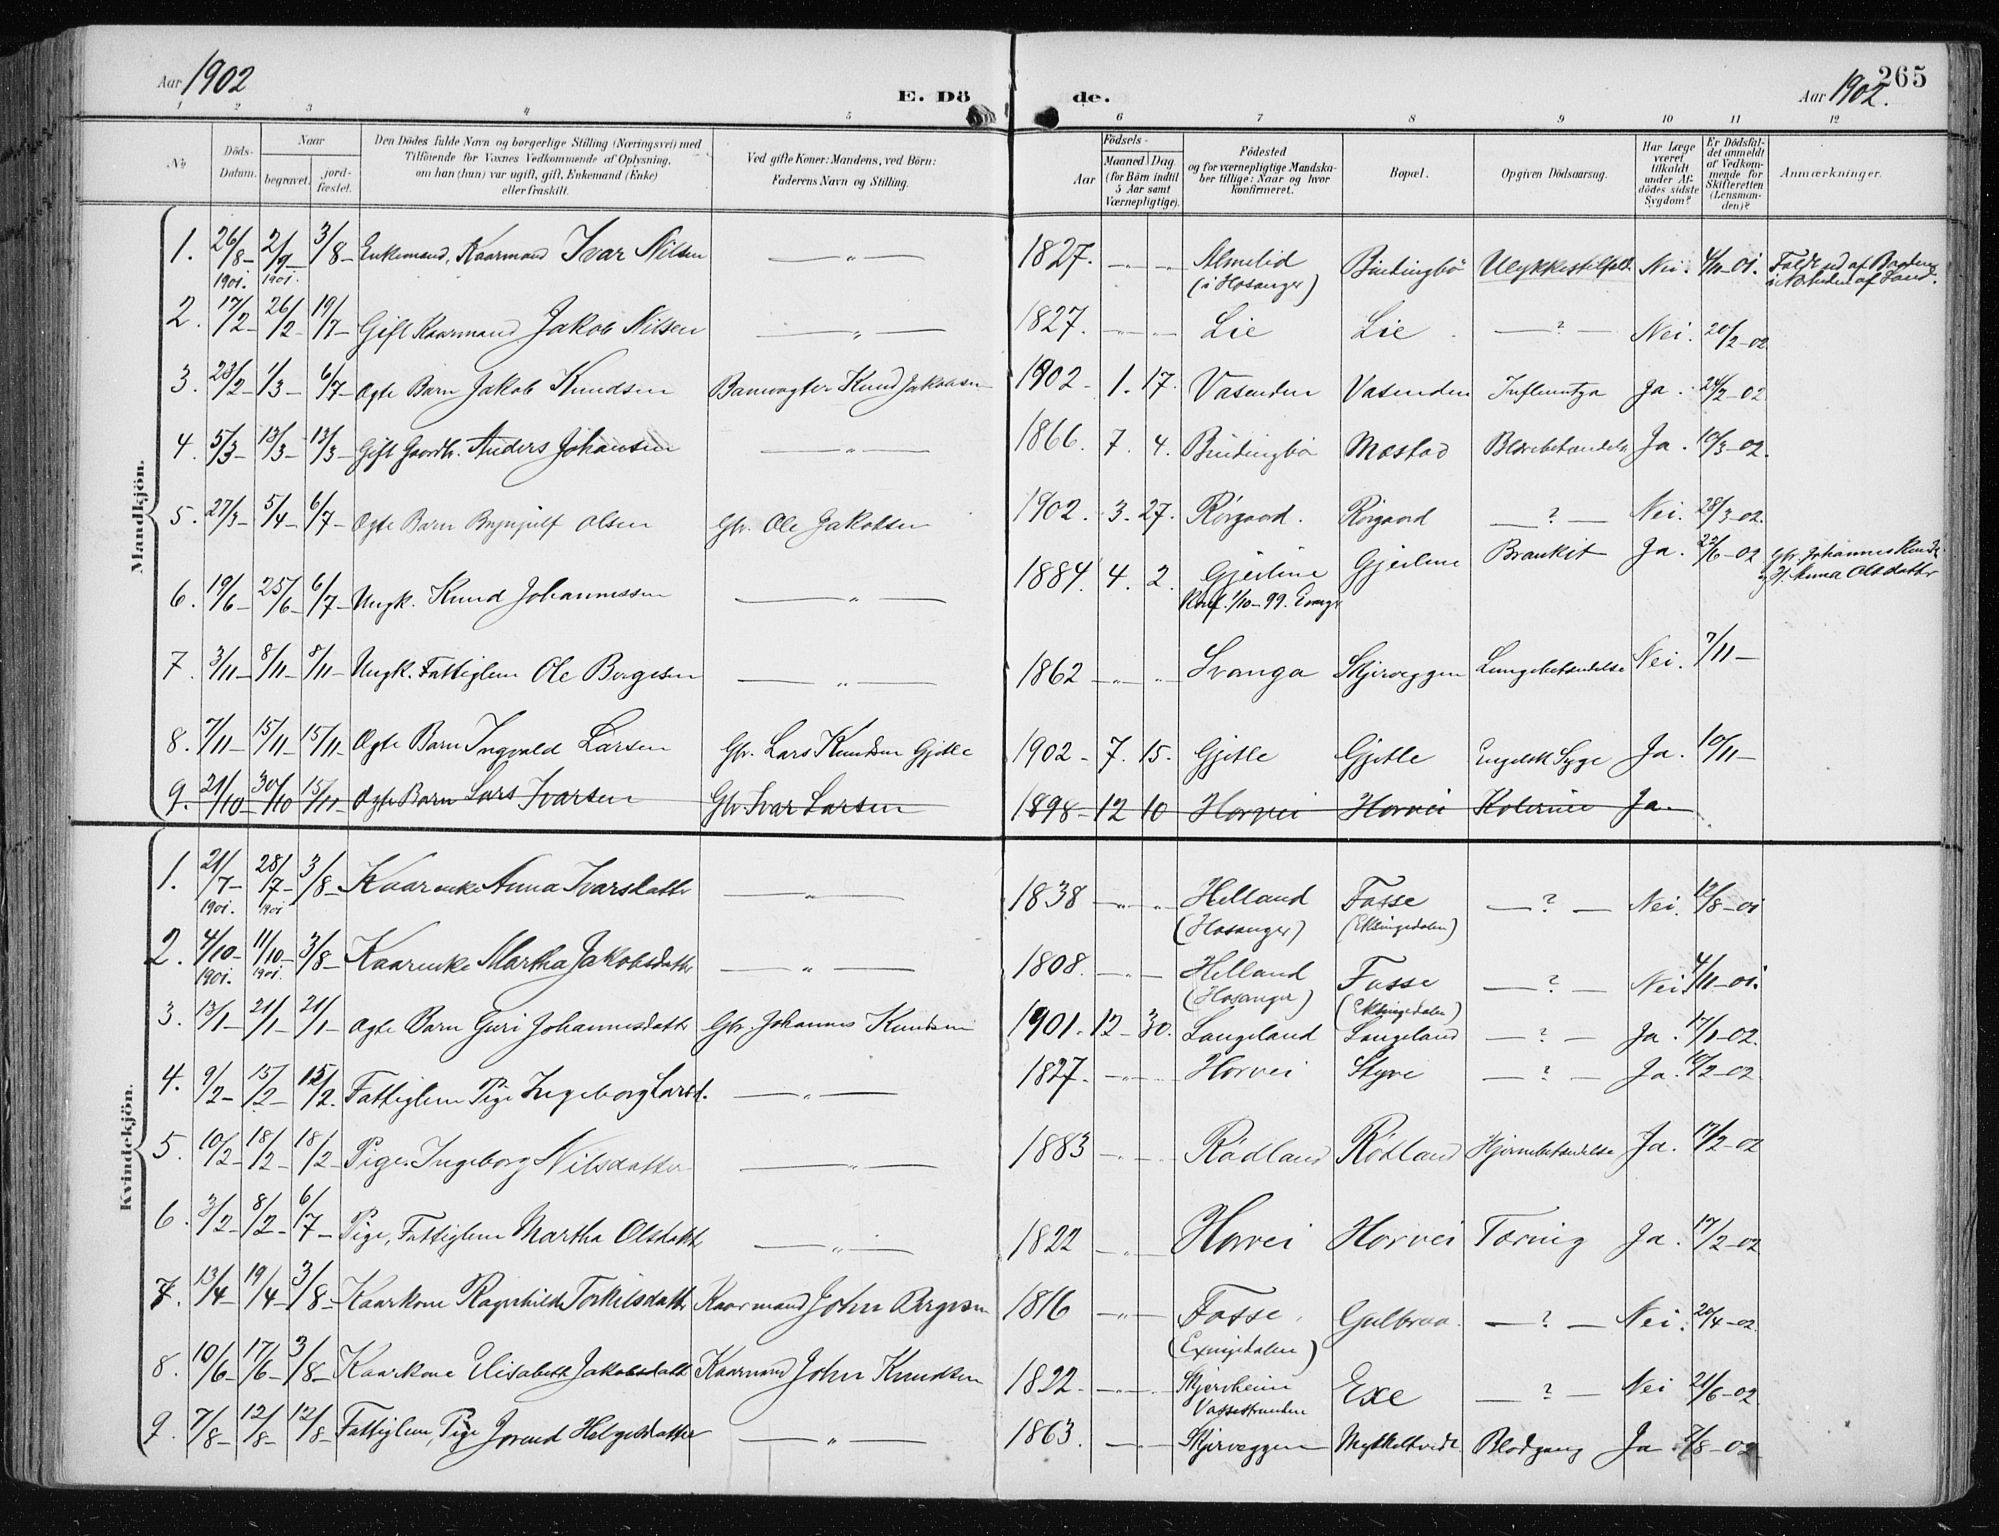 Aar 1902
E. Dö de.
Aar 1902.
265
1 2 3 4 5 6 7 8 9 10 11 12
No
Döds-Datum.
Naar
begravet.
jord-fæstet.
Den Dödes fulde Navn og borgerlige Stilling (Næringsvei) med
Tilföiende for Voxnes Vedkommende af Oplysning,
om han (hun) var ugift, gift, Enkemand (Enke)
eller fraskilt.
Ved gifte Koner: Mandens, ved Börn:
Faderens Navn og Stilling.
Födsels-
Aar
Maaned Dag
(for Börn indtil
5 Aar samt
Værnepligtige).
Födested
og for værnepligtige Mandska-
ber tillige: Naar og hvor
konfirmeret.
Bopæl.
Opgiven Dödsaarsag.
Har Læge
været
tilkaldt
under Af-
dödes sidste
Sygdom?
Er Dödsfal-
det anmeldt
af Vedkom-
mende for
Skifteretten
(Lensman-
den)?
Anmærkninger.
Mandkjön.
1. 26/8 1901. 2/9 1901. 3/8 Enkemand, Kaarmand Ivar Nilsen — „ — 1827. „ „ Almelid (i Hosanger) Bindingbö Ulykkestilfæld. Nei. 4/11-01. Faldt ned af
2. 17/2 26/2 19/7 Gift Kaarmand Jakob Nilsen — „ — 1827. „ „ Lie Lie — ? — Nei. 20/2-02
3. 23/2 1/3 6/7 Ægte Barn Jakob Knudsen Banevogter Knud Jakobsen 1902. 1. 17. Vasenden Vasenden Influentza Ja. 24/2-02
4. 5/3 13/3 13/3 Gift Gaardbr. Anders Johansen — „ — 1866. 7. 4. Bindingbö Mestad Blærebetændelse Ja. 10/3-02.
5. 27/3 5/4 6/7 Ægte Barn Brynjulf Olsen Gbr. Ole Jakobsen 1902. 3. 27. Rörgaard. Rörgaard — ? — Nei. 28/3-02.
6. 19/6 25/6 6/7 Ungk. Knud Johannessen — „ — 1884. 4. 2. Gjeiline Konf. 1/10-99. Evanger Gjeiline Bronkit Ja. 22/6-02 Gbr. Johannes Knuds. og H. Anna Olsdatter
7. 3/11 8/11 8/11 Ungk. Fattiglem Ole Børgesen — „ — 1862 „ „ Svanga Skjerveggen Lungebetændelse Nei. 7/11
8. 7/11 15/11 15/11 Ægte Barn Ingvald Larsen Gbr. Lars Knudsen Gjitle 1902 7. 15. Gjitle Gjitle Engelsk Syge Ja. 10/11
9. 21/10 30/10 15/11 Ægte Barn Lars Ivarsen Gbr Ivar Larsen 1898 12 10 Horvei Horvei Kolerine Ja.
Kvindekjön.
1. 21/7 1901. 28/7 1901 3/8 Kaarenke Anna Ivarsdatter — „ — 1838 „ „ Helland (Hosanger) Fosse (Eksingedalen) — ? — Nei. 12/8-01
2. 4/10 1901. 11/10 1901. 3/8 Kaarenke Martha Jakobsdatter — „ — 1808. „ „ Helland (Hosanger) Fosse (Eksingedalen) — ? — Nei. 4/11-01.
3. 13/1 21/1 21/1 Ægte Barn Guri Johannesdatter Gbr. Johannes Knudsen 1901. 12 30. Langeland Langeland — ? — Ja. 17/1-02.
4. 9/2 15/2 15/2. Fattiglem Pige Ingeborg Larsd. — „ — 1827. „ „ Horvei Styve — ? — Ja. 10/2-02
5. 10/2 18/2 18/2 Pige. Ingeborg Nilsdatter — „ — 1883 „ „ Rödland Rödland Hjernebetændelse Ja. 17/2-02
6. 3/2 8/2 6/7 Pige, Fattiglem Martha Olsdatter — „ — 1822 „ Horvei Horvei Tæring Ja. 17/2-02
7. 13/4 19/4 3/8 Kaarkone Ragnhilde Torkilsdatter Kaarmand John Bergesen 1816 „ Fosse (Exingedalen) Gulbraa. — ? — Nei. 20/4-02
8. 10/6 17/6 3/8 Kaarkone Elisabeth Jakobsdatter Kaarmand John Knudsen 1822. „ „ Skjerveheim Vossestranden Exe — ? — Nei 21/6-02
9. 7/8 12/8 12/8 Fattiglem, Pige Jorend Helgesdatter — „ — 1863. „ Skjerveggen Mykkeltvedt Blodgang Ja. 8/8-02